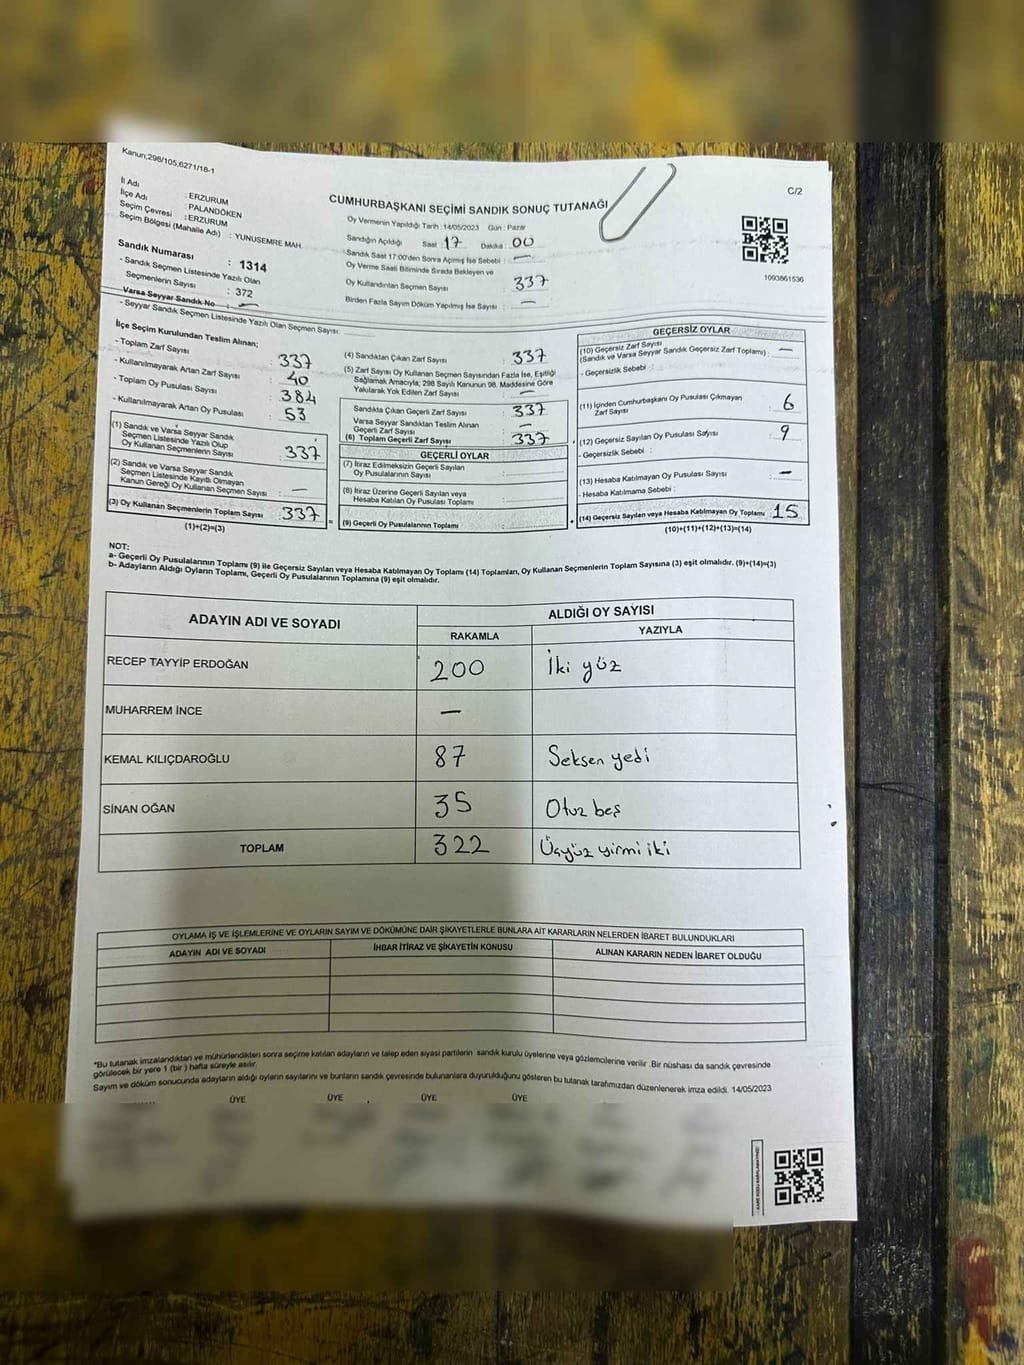 Kanun;298/105,6271/18-1
C/2
İl Adı : ERZURUM
İlçe Adı : PALANDÖKEN
Seçim Çevresi : ERZURUM
Seçim Bölgesi (Mahalle Adı) : YUNUSEMRE MAH.
Sandık Numarası : 1314
- Sandık Seçmen Listesinde Yazılı Olan
Seçmenlerin Sayısı : 372
Varsa Seyyar Sandık No : —
- Seyyar Sandık Seçmen Listesinde Yazılı Olan Seçmen Sayısı:
CUMHURBAŞKANI SEÇİMİ SANDIK SONUÇ TUTANAĞI
Oy Vermenin Yapıldığı Tarih :14/05/2023 Gün : Pazar
Sandığın Açıldığı Saat 17 Dakika : 00
Sandık Saat 17:00'den Sonra Açımış İse Sebebi : —
Oy Verme Saati Bitiminde Sırada Bekleyen ve
Oy Kullandırılan Seçmen Sayısı : 337
Birden Fazla Sayım Döküm Yapılmış İse Sayısı : —
1093861536
İlçe Seçim Kurulundan Teslim Alınan;
- Toplam Zarf Sayısı : 337
- Kullanılmayarak Artan Zarf Sayısı : 40
- Toplam Oy Pusulası Sayısı : 384
- Kullanılmayarak Artan Oy Pusulası : 53
(1) Sandık ve Varsa Seyyar Sandık
Seçmen Listesinde Yazılı Olup
Oy Kullanan Seçmenlerin Sayısı : 337
(2) Sandık ve Varsa Seyyar Sandık
Seçmen Listesinde Kayıtlı Olmayan
Kanun Gereği Oy Kullanan Seçmen Sayısı : —
(3) Oy Kullanan Seçmenlerin Toplam Sayısı : 337
(1)+(2)=(3)
(4) Sandıktan Çıkan Zarf Sayısı : 337
(5) Zarf Sayısı Oy Kullanan Seçmen Sayısından Fazla İse, Eşitliği
Sağlamak Amacıyla; 298 Sayılı Kanunun 98. Maddesine Göre
Yakılarak Yok Edilen Zarf Sayısı : —
Sandıkta Çıkan Geçerli Zarf Sayısı : 337
Varsa Seyyar Sandıktan Teslim Alınan
Geçerli Zarf Sayısı : —
(6) Toplam Geçerli Zarf Sayısı : 337
GEÇERLİ OYLAR
(7) İtiraz Edilmeksizin Geçerli Sayılan
Oy Pusulalarının Sayısı :
(8) İtiraz Üzerine Geçerli Sayılan veya
Hesaba Katılan Oy Pusulası Toplamı :
= (9) Geçerli Oy Pusulalarının Toplamı :
GEÇERSİZ OYLAR
(10) Geçersiz Zarf Sayısı
(Sandık ve Varsa Seyyar Sandık Geçersiz Zarf Toplamı) : —
- Geçersizlik Sebebi :
(11) İçinden Cumhurbaşkanı Oy Pusulası Çıkmayan
Zarf Sayısı : 6
(12) Geçersiz Sayılan Oy Pusulası Sayısı : 9
- Geçersizlik Sebebi :
(13) Hesaba Katılmayan Oy Pusulası Sayısı : —
- Hesaba Katılmama Sebebi :
+ (14) Geçersiz Sayılan veya Hesaba Katılmayan Oy Toplamı : 15
(10)+(11)+(12)+(13)=(14)
NOT:
a- Geçerli Oy Pusulalarının Toplamı (9) ile Geçersiz Sayılan veya Hesaba Katılmayan Oy Toplamı (14) Toplamları, Oy Kullanan Seçmenlerin Toplam Sayısına (3) eşit olmalıdır. (9)+(14)=(3)
b- Adayların Aldığı Oyların Toplamı, Geçerli Oy Pusulalarının Toplamına (9) eşit olmalıdır.
ADAYIN ADI VE SOYADI
ALDIĞI OY SAYISI
RAKAMLA
YAZIYLA
RECEP TAYYİP ERDOĞAN 200 İki yüz
MUHARREM İNCE —
KEMAL KILIÇDAROĞLU 87 Seksen yedi
SİNAN OĞAN 35 Otuz beş
TOPLAM 322 Üçyüz yirmi iki
OYLAMA İŞ VE İŞLEMLERİNE VE OYLARIN SAYIM VE DÖKÜMÜNE DAİR ŞİKAYETLERLE BUNLARA AİT KARARLARIN NELERDEN İBARET BULUNDUKLARI
ADAYIN ADI VE SOYADI
İHBAR İTİRAZ VE ŞİKAYETİN KONUSU
ALINAN KARARIN NEDEN İBARET OLDUĞU
*Bu tutanak imzalandıktan ve mühürlendikten sonra seçime katılan adayların ve talep eden siyasi partilerin sandık kurulu üyelerine veya gözlemcilerine verilir .Bir nüshası da sandık çevresinde
görülecek bir yere 1 (bir ) hafta süreyle asılır.
Sayım ve döküm sonucunda adayların aldığı oyların sayılarını ve bunların sandık çevresinde bulunanlara duyurulduğunu gösteren bu tutanak tarafımızdan düzenlenerek imza edildi. 14/05/2023
ÜYE ÜYE ÜYE ÜYE